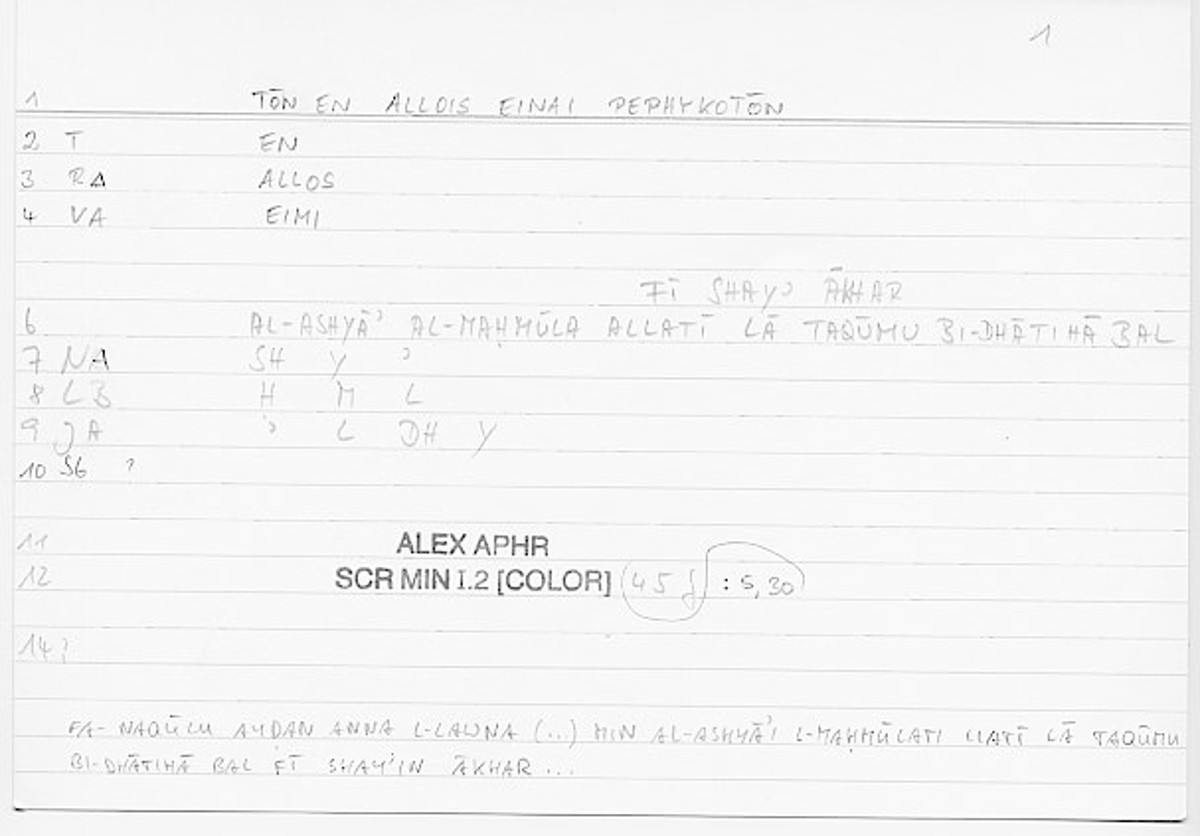 1
1 TŌN EN ALLOIS EINAI PEPHYKOTŌN
2 T EN
3 RA ALLOS
4 VA EIMI
FĪ SHAYʾ ĀKHAR
6 AL-ASHYĀʾ AL-MAḤMŪLA ALLATĪ LĀ TAQŪMU BI-DHĀTIHĀ BAL
7 NA SH Y ʾ
8 LB H M L
9 JA ʾ L DH Y
10 SG ?
11 ALEX APHR
12 SCR MIN I.2 [COLOR] (45 : 5,30)
14?
FA-NAQŪLU AYḌAN ANNA L-LAWNA (...) MIN AL-ASHYĀʾI L-MAḤMŪLATI LLATĪ LĀ TAQŪMU
BI-DHĀTIHĀ BAL FĪ SHAYʾIN ĀKHAR ...